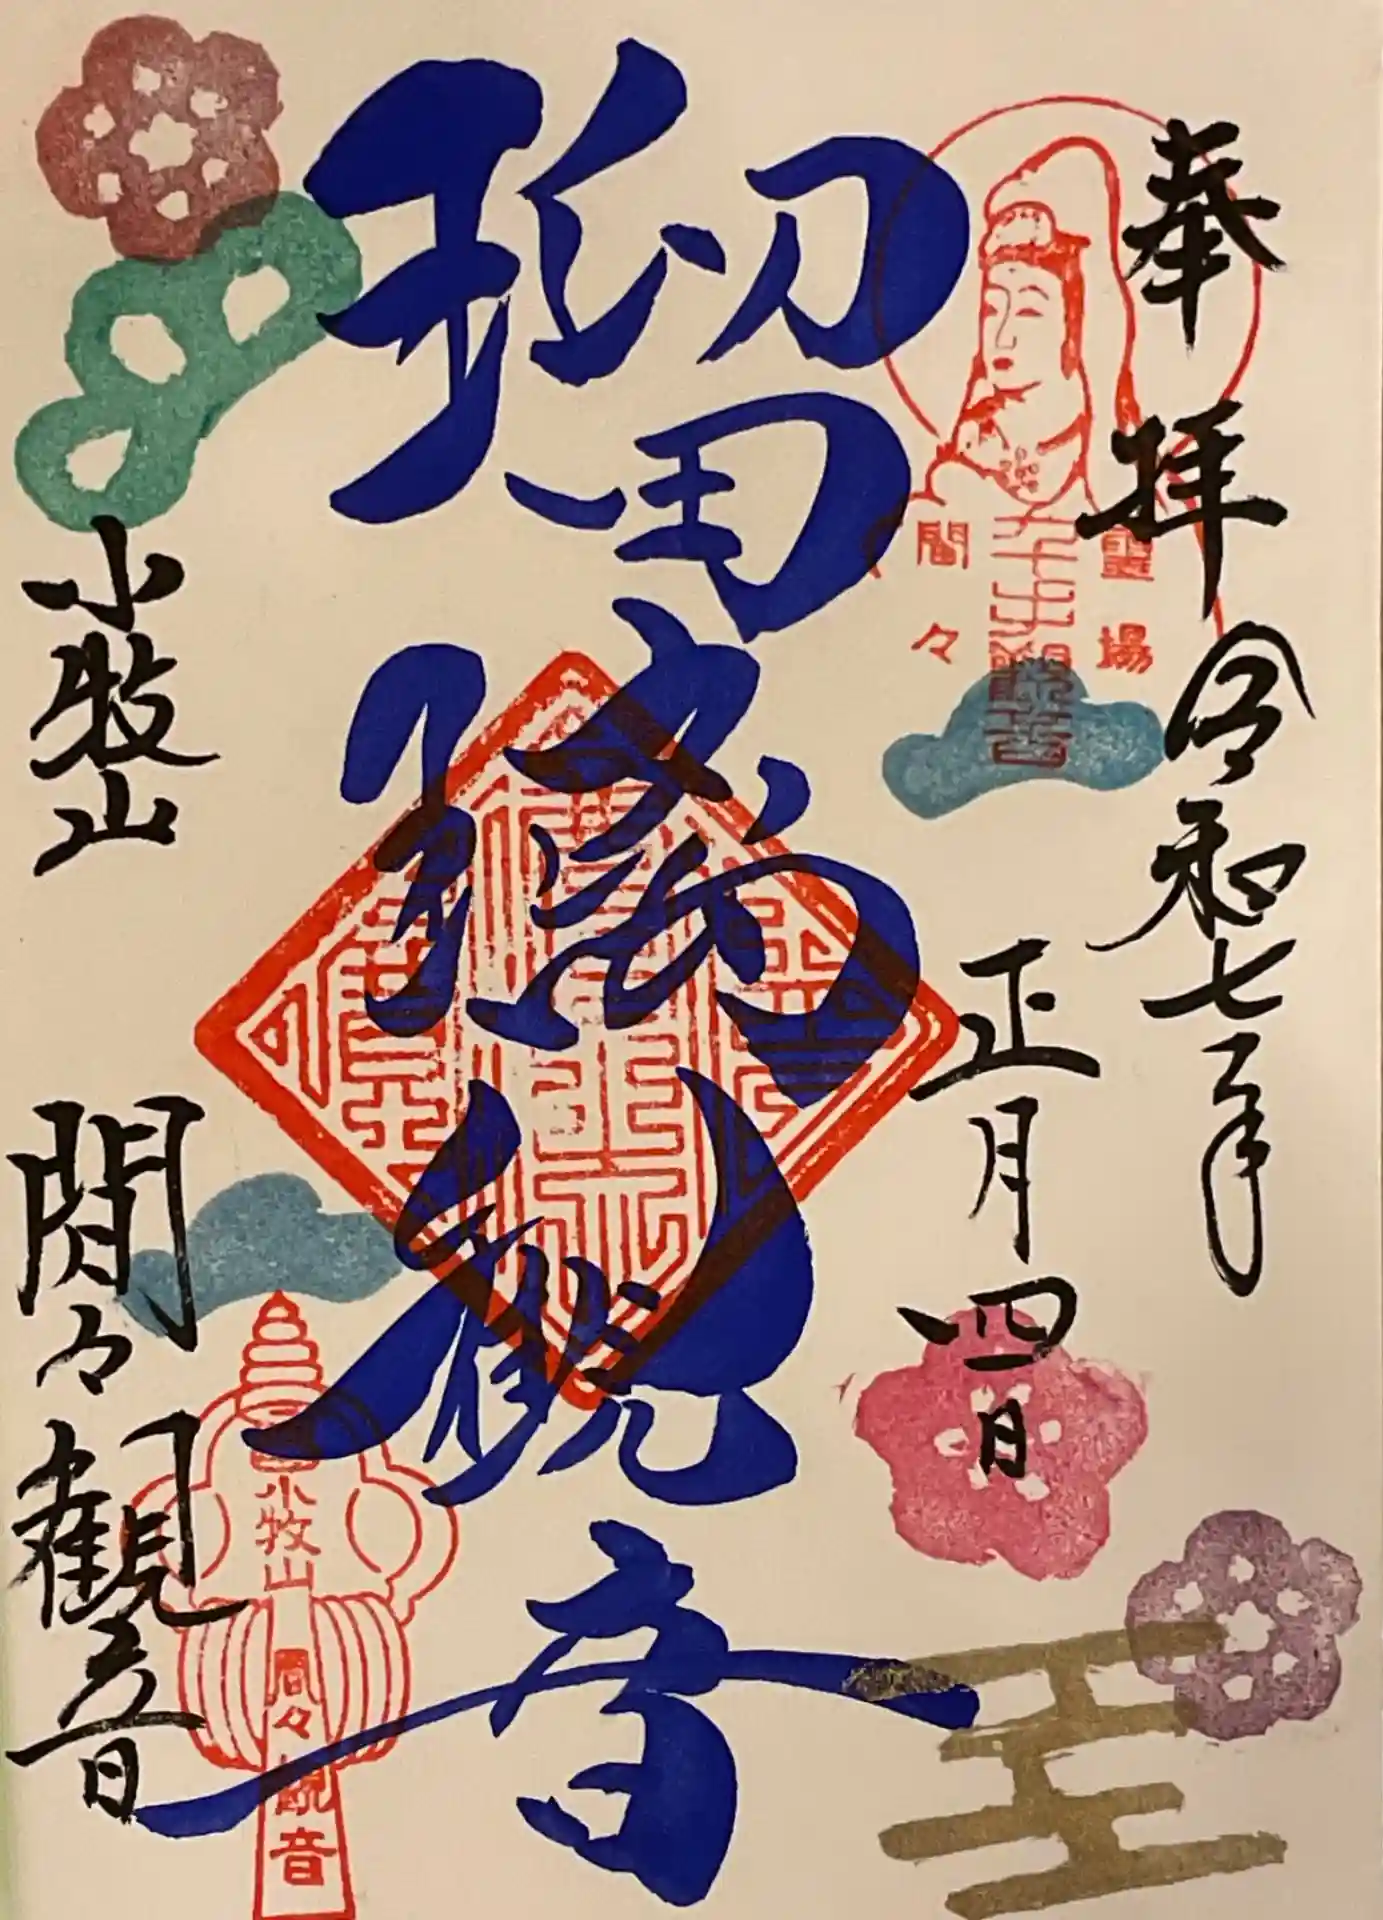 奉拝
令和七年
正月四日
霊場
千手観音
間々
瑠璃観音
小牧山
間々観音
小牧山
間々観音